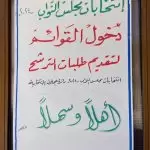 إنتخابات مجلس النواب
دخول القوائم
لتقديم طلبات الترشح
أهلاً وسهلاً